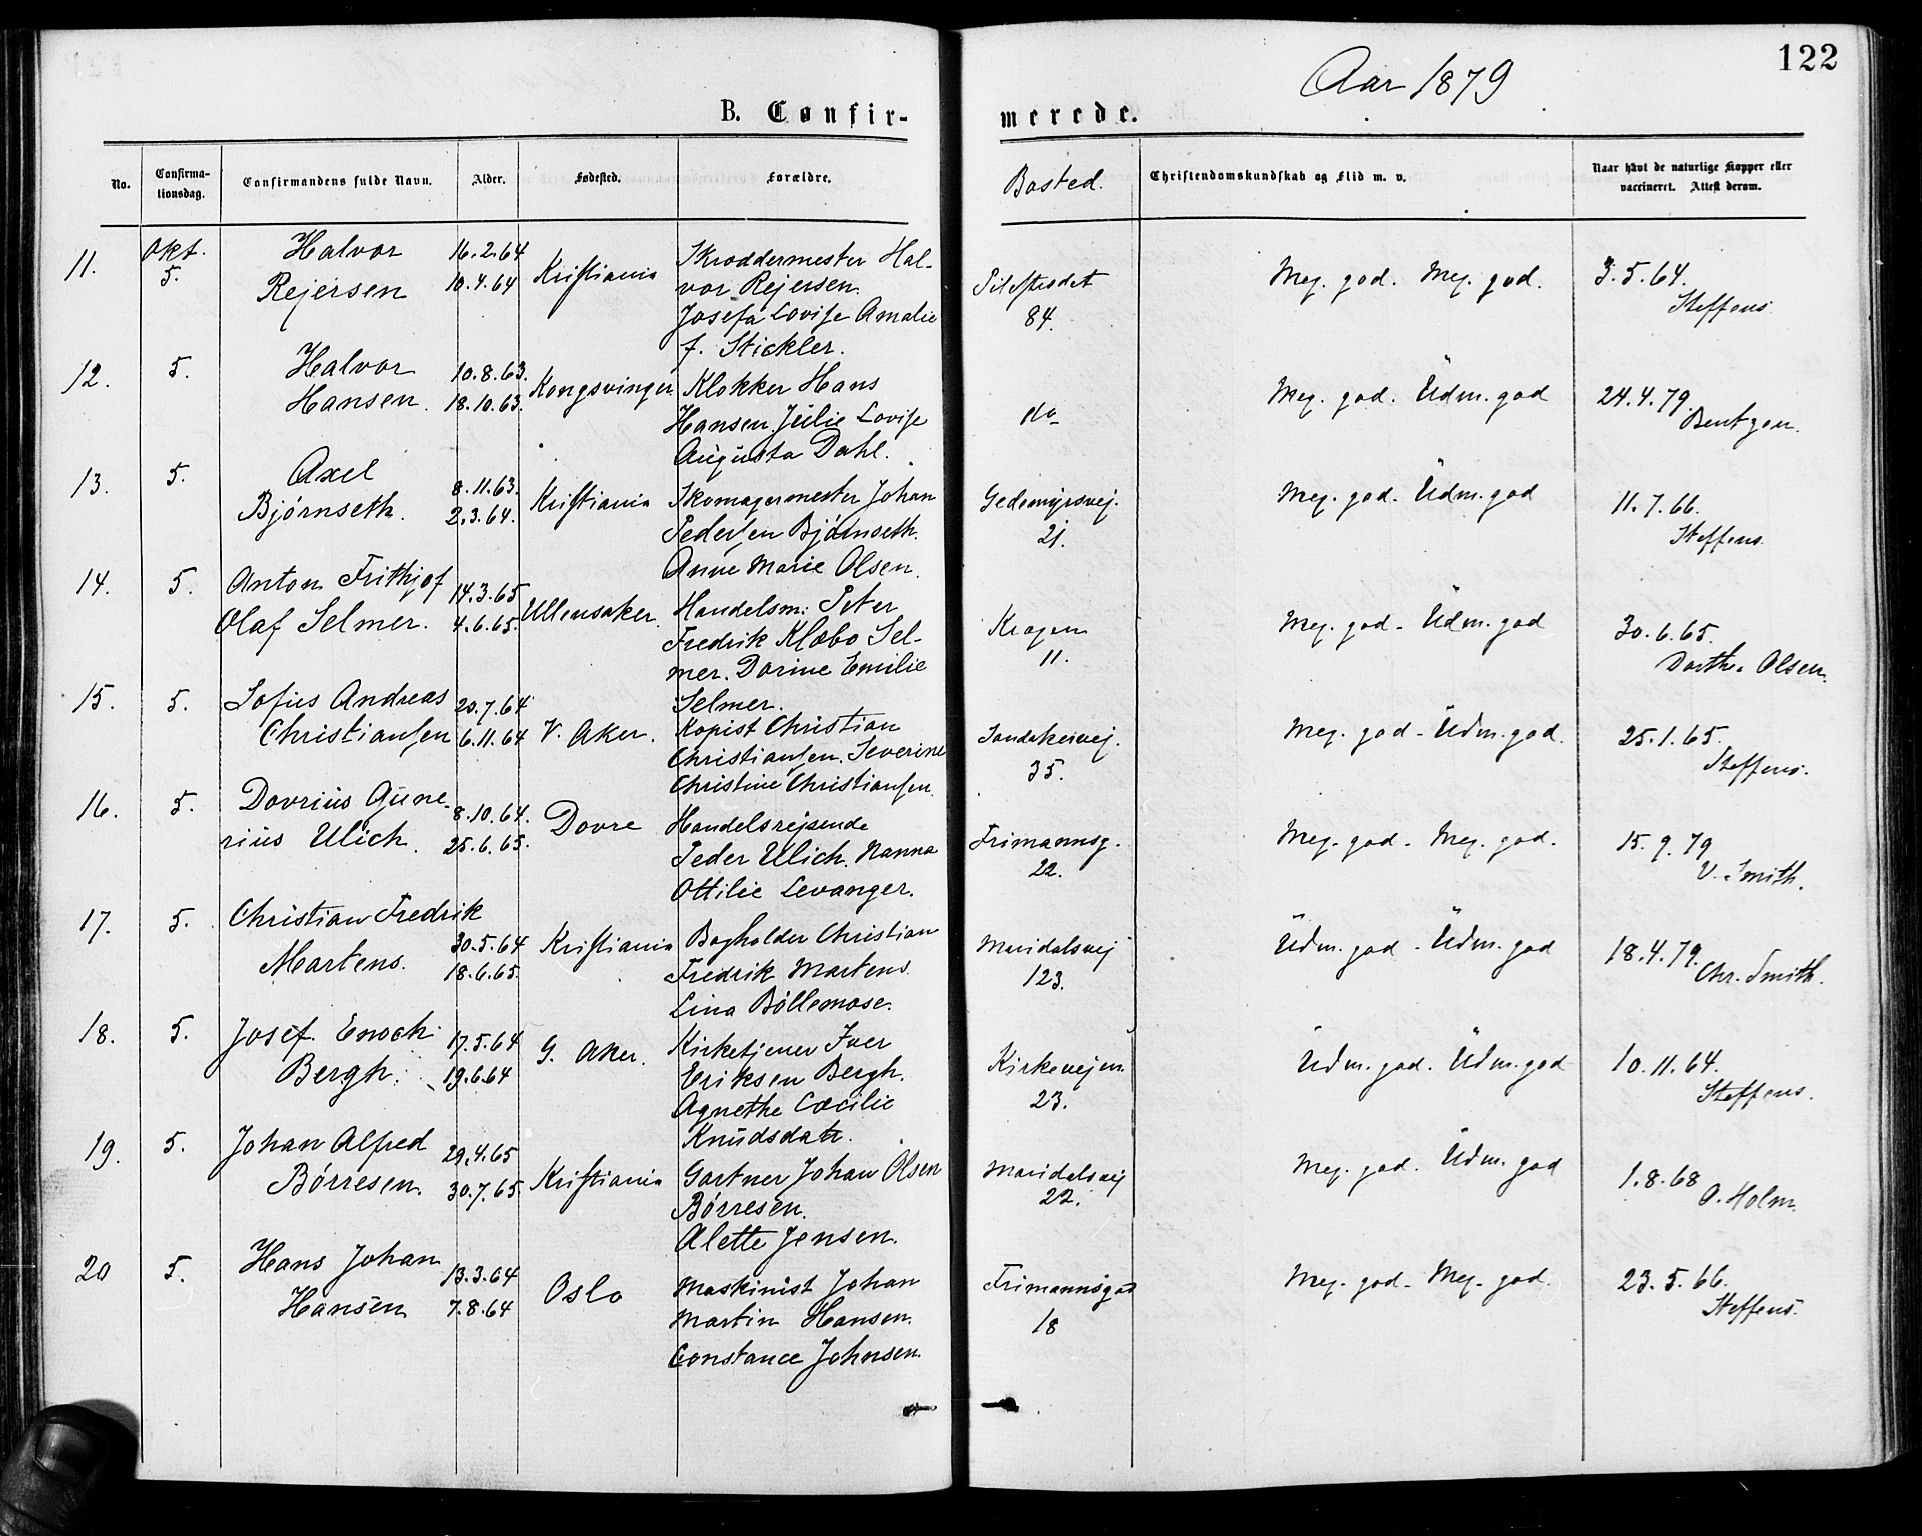 122
Aar 1879
B. Confir-
merede.
No.
Confirma-
tionsdag.
Confirmandens fulde Navn.
Alder.
Fødested.
Forældre.
Bosted.
Christendomskundskab og Flid m. v.
Naar havt de naturlige Kopper eller
vaccineret. Attest derom.
11.
Okt.
5.
Halvor
Rejersen
16.2.64
10.4.64
Kristiania
Skræddermester Hal-
vor Rejersen.
Josefa Lovise Amalie
f. Stickler.
Pilestrædet
84.
Meg. god. Meg. god.
3.5.64.
Steffens
12.
5.
Halvor
Hansen.
10.8.63.
18.10.63.
Kongsvinger
Klokker Hans
Hansen. Julie Lovise
Augusta Dahl.
do
Meg. god. Udm. god
24.4.79.
Bentzen.
13.
5.
Axel
Bjørnseth.
8.11.63.
2.3.64.
Kristiania
Skomagermester Johan
Pedersen Bjørnseth.
Anne Marie Olsen.
Gedemyrsvej.
21.
Meg. god. Udm. god
11.7.66.
Steffens
14.
5.
Anton Frithjof
Olaf Selmer.
14.3.65
4.6.65.
Ullensaker.
Handelsm: Peter
Fredrik Klæbo Sel-
mer. Dorine Emilie
Selmer.
Kragen
11.
Meg. god - Udm. god
30.6.65.
Dorthe Olsen.
15.
5.
Sofus Andreas
Christiansen
20.7.64
6.11.64
V. Aker.
Kopist Christian
Christiansen. Severine
Christine Christiansen.
Sandakervej.
35.
Meg. god - Udm. god.
25.1.65.
Steffens.
16.
5.
Dovrius Gune-
rius Ulich.
8.10.64.
25.6.65.
Dovre
Handelsrejsende
Peder Ulich. Nanna
Ottilie Levanger.
Frimannsg.
22.
Meg. god - Meg. god.
15.9.79
V. Smith.
17.
5.
Christian Fredrik
Martens.
30.5.64
18.6.65.
Kristiania
Bogholder Christian
Fredrik Martens.
Lina Bøllemose.
Maridalsvej
123.
Udm. god - Udm. god
18.4.79.
Chr. Smith.
18.
5.
Josef Enoch
Bergh.
17.5.64
19.6.64
G. Aker.
Kirketjener Iver
Eriksen Bergh.
Agnethe Cæcilie
Knudsdatr.
Kirkevejen
23.
Udm. god. Udm. god
10.11.64.
Steffens.
19.
5.
Johan Alfred
Børresen.
29.4.65
30.7.65.
Kristiania
Gartner Johan Olsen
Børresen.
Alette Jensen.
Maridalsvej
22.
Meg. god. Udm. god
1.8.68
O. Holm.
20
5.
Hans Johan
Hansen
13.3.64
7.8.64
Oslo
Maskinist Johan
Martin Hansen.
Constance Johnsen.
Frimannsgad
18
Meg. god - Meg. god.
23.5.66.
Steffens.